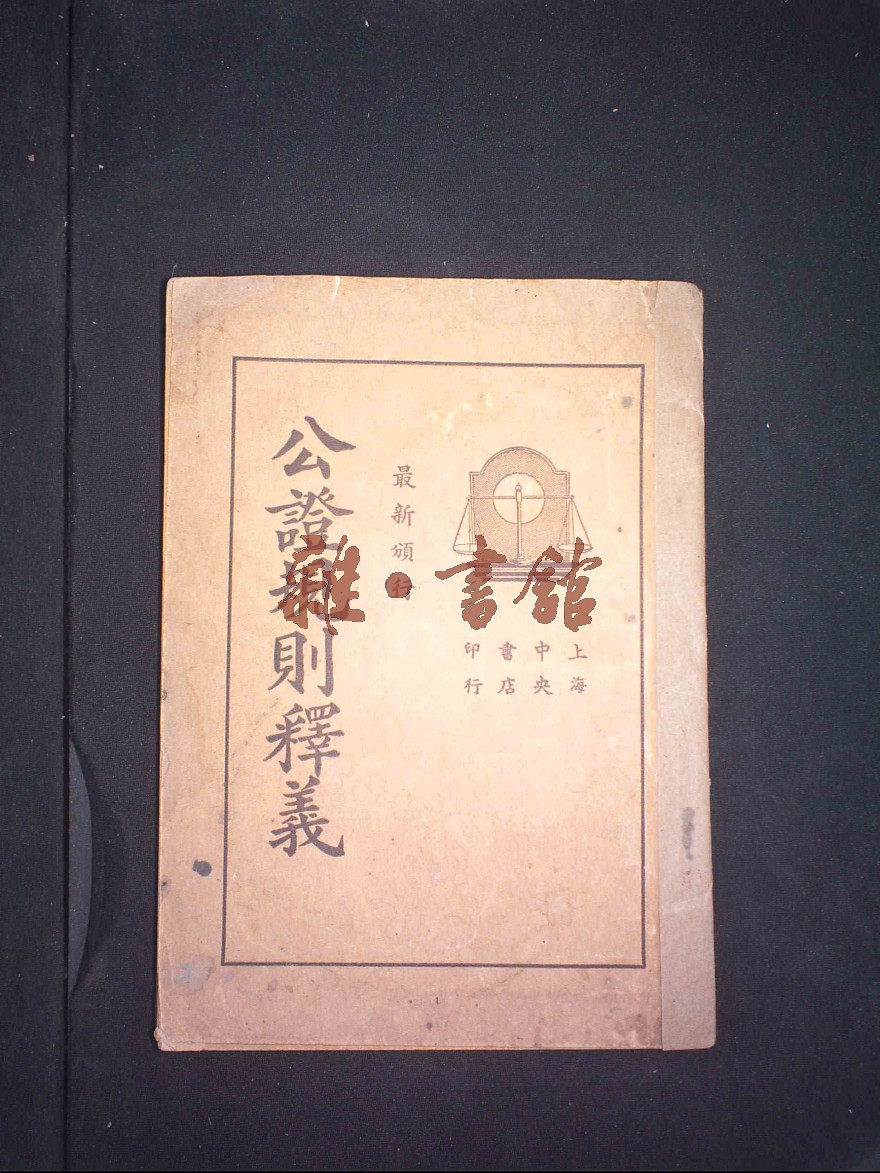 上海
中央
書店
印行
最新頒行
公證規則釋義
雜·書館